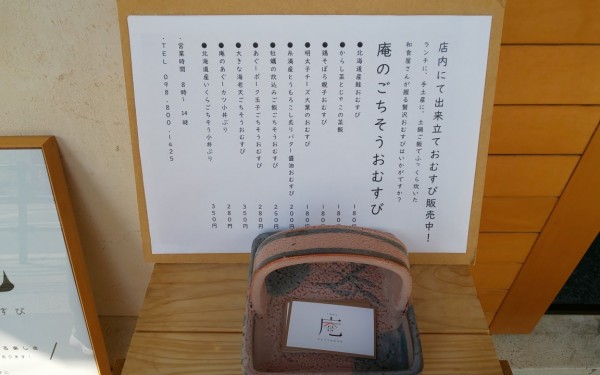 店内にて出来立ておむすび販売中！
ランチに、手土産に、土鍋ご飯でふっくら炊いた
和食屋さんが握る贅沢おむすびはいかがですか？
庵のごちそうおむすび
●北海道産鮭おむすび 180円
●からし菜とじゃこの菜飯 180円
●鶏そぼろ親子おむすび 180円
●明太子チーズ大葉のおむすび 180円
●糸満産とうもろこし炙りバター醤油おむすび 200円
●牡蠣の炊込みご飯ごちそうおむすび 250円
●あぐーポーク玉子ごちそうおむすび 280円
●大きな海老天ごちそうおむすび 350円
●庵のあぐーカツ小丼ぶり 280円
●北海道産いくらごちそう小丼ぶり 350円
・営業時間 8時〜14時
・TEL 098.800.1425
庵
すび